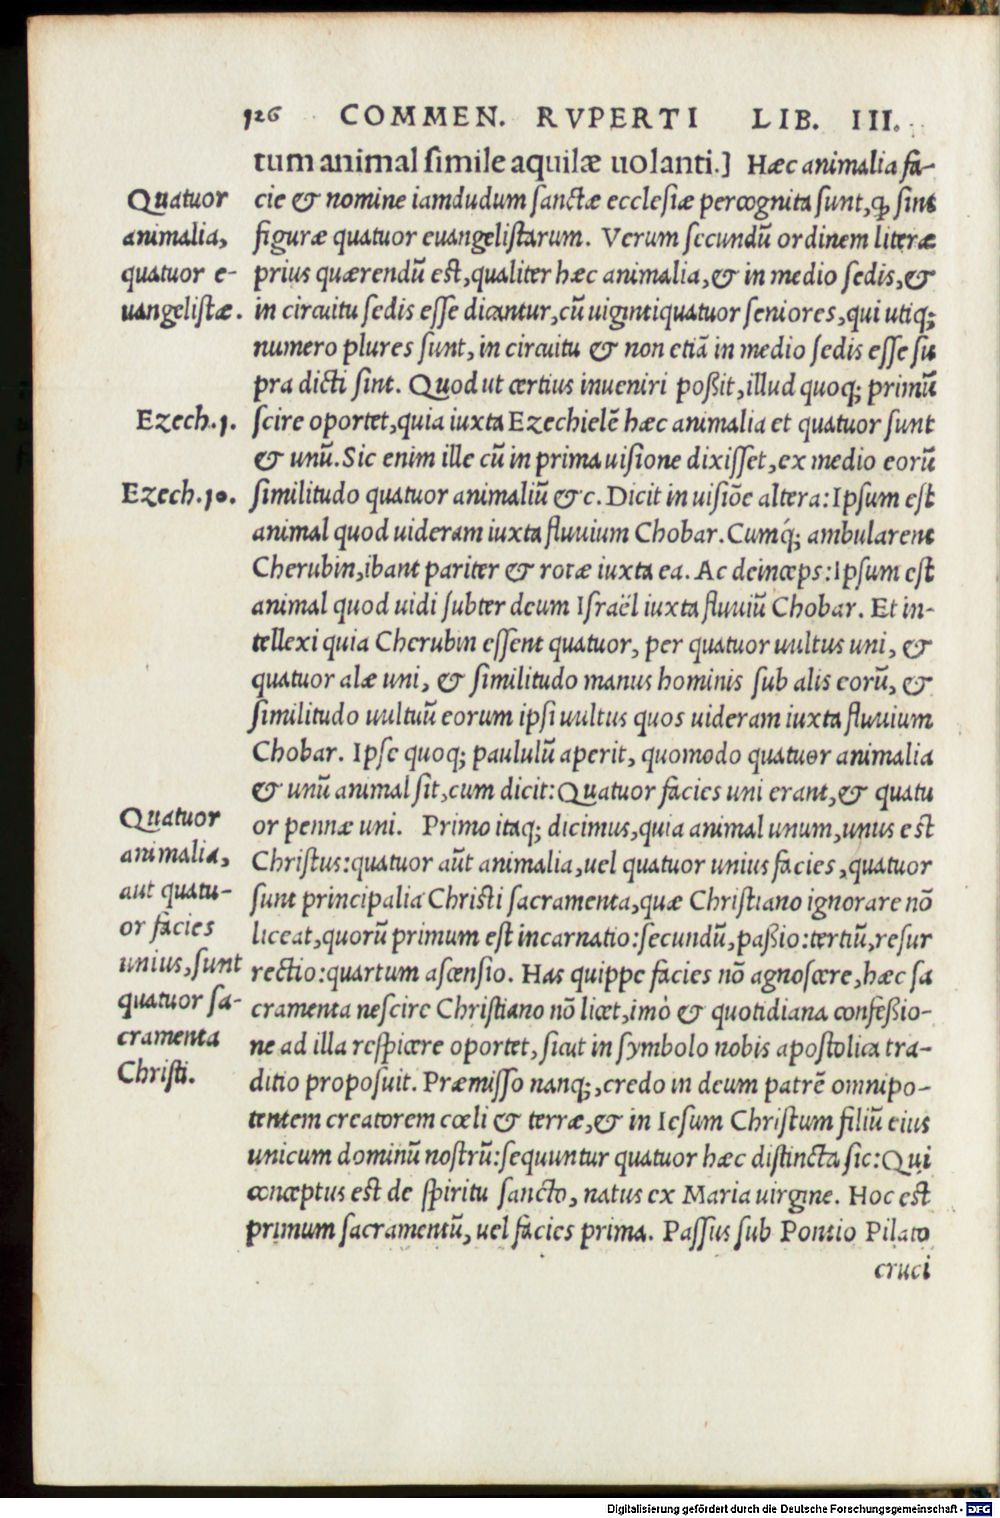 126 COMMEN. RVPERTI LIB. III.
tum animal simile aquilæ uolanti.] Hæc animalia fa-
Quatuor
animalia,
quatuor e-
uangelistæ.
cie & nomine iamdudum sanctæ ecclesiæ percognita sunt, ꝙ sint
figuræ quatuor euangelistarum. Verum secundũ ordinem literæ
prius quærendũ est, qualiter hæc animalia, & in medio sedis, &
in circuitu sedis esse dicantur, cũ uigintiquatuor seniores, qui utiq;
numero plures sunt, in circuitu & non etiã in medio sedis esse su
pra dicti sint. Quod ut certius inueniri poßit, illud quoq; primũ
Ezech.1.
scire oportet, quia iuxta Ezechielẽ hæc animalia et quatuor sunt
& unũ. Sic enim ille cũ in prima uisione dixisset, ex medio eorũ
Ezech.10.
similitudo quatuor animaliũ &c. Dicit in uisiõe altera: Ipsum est
animal quod uideram iuxta fluuium Chobar. Cumq́; ambularent
Cherubin, ibant pariter & rotæ iuxta ea. Ac deinceps: Ipsum est
animal quod uidi subter deum Israël iuxta fluuiũ Chobar. Et in-
tellexi quia Cherubin essent quatuor, per quatuor uultus uni, &
quatuor alæ uni, & similitudo manus hominis sub alis eorũ, &
similitudo uultuũ eorum ipsi uultus quos uideram iuxta fluuium
Chobar. Ipse quoq; paululũ aperit, quomodo quatuor animalia
& unũ animal sit, cum dicit: Quatuor facies uni erant, & quatu
Quatuor
animalia,
aut quatu-
or facies
unius, sunt
quatuor sa-
cramenta
Christi.
or pennæ uni. Primo itaq; dicimus, quia animal unum, unus est
Christus: quatuor aũt animalia, uel quatuor unius facies, quatuor
sunt principalia Christi sacramenta, quæ Christiano ignorare nõ
liceat, quorũ primum est incarnatio: secundũ, paßio: tertiũ, resur
rectio: quartum ascensio. Has quippe facies nõ agnoscere, hæc sa
cramenta nescire Christiano nõ licet, imò & quotidiana confeßio-
ne ad illa respicere oportet, sicut in symbolo nobis apostolica tra-
ditio proposuit. Præmisso nanq;, credo in deum patrẽ omnipo-
tentem creatorem cœli & terræ, & in Iesum Christum filiũ eius
unicum dominũ nostrũ: sequuntur quatuor hæc distincta sic: Qui
conceptus est de spiritu sancto, natus ex Maria uirgine. Hoc est
primum sacramentũ, uel facies prima. Passus sub Pontio Pilato
cruci
Digitalisierung gefördert durch die Deutsche Forschungsgemeinschaft - DFG